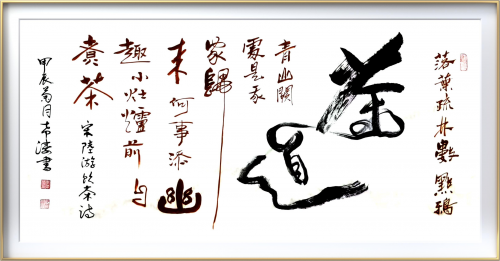 落葉疏林數點鴉
茶道
青山闕
處是我
家歸
来何事添幽
趣小灶爐前自
煮茶
宋陸游飲茶詩
甲辰菊月書